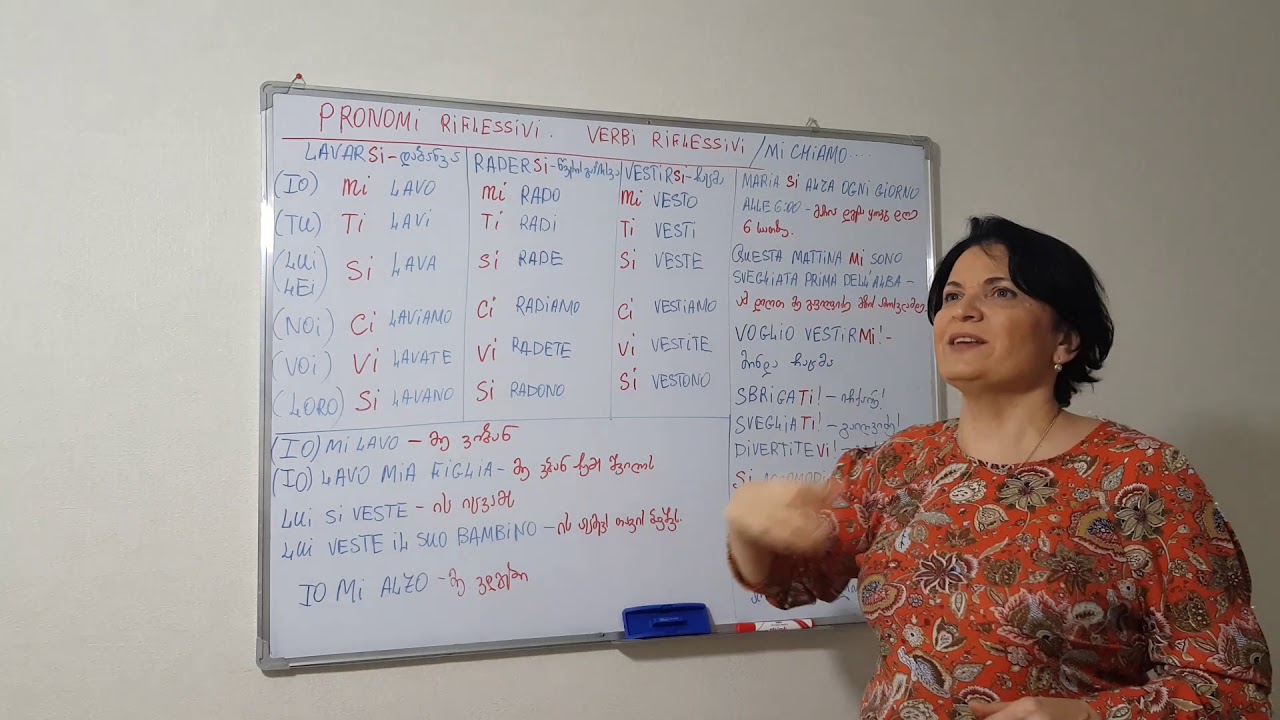 PRONOMI RIFLESSIVI. VERBI RIFLESSIVI / MI CHIAMO....
LAVARSI - დაბანვა
(IO) MI LAVO
(TU) TI LAVI
(LUI LEI) SI LAVA
(NOI) CI LAVIAMO
(VOI) VI LAVATE
(LORO) SI LAVANO
RADERSI - წვერის გაპარსვა
MI RADO
TI RADI
SI RADE
CI RADIAMO
VI RADETE
SI RADONO
VESTIRSI - ჩაცმა
MI VESTO
TI VESTI
SI VESTE
CI VESTIAMO
VI VESTITE
SI VESTONO
MARIA SI ALZA OGNI GIORNO
ALLE 6:00 - მარია დგება ყოველ დღე
6 საათზე.
QUESTA MATTINA MI SONO
SVEGLIATA PRIMA DELL'ALBA -
ამ დილით მე გავიღვიძე მზის ამოსვლამდე.
VOGLIO VESTIRMI! -
მინდა ჩაცმა
SBRIGATI! - იჩქარე!
SVEGLIATI! - გაიღვიძე!
DIVERTITEVI! -
SI
(IO) MI LAVO - მე ვიბან
(IO) LAVO MIA FIGLIA - მე ვბან ჩემს შვილს
LUI SI VESTE - ის იცვამს
LUI VESTE IL SUO BAMBINO - ის აცმევს თავის ბავშვს.
IO MI ALZO - მე ვდგები